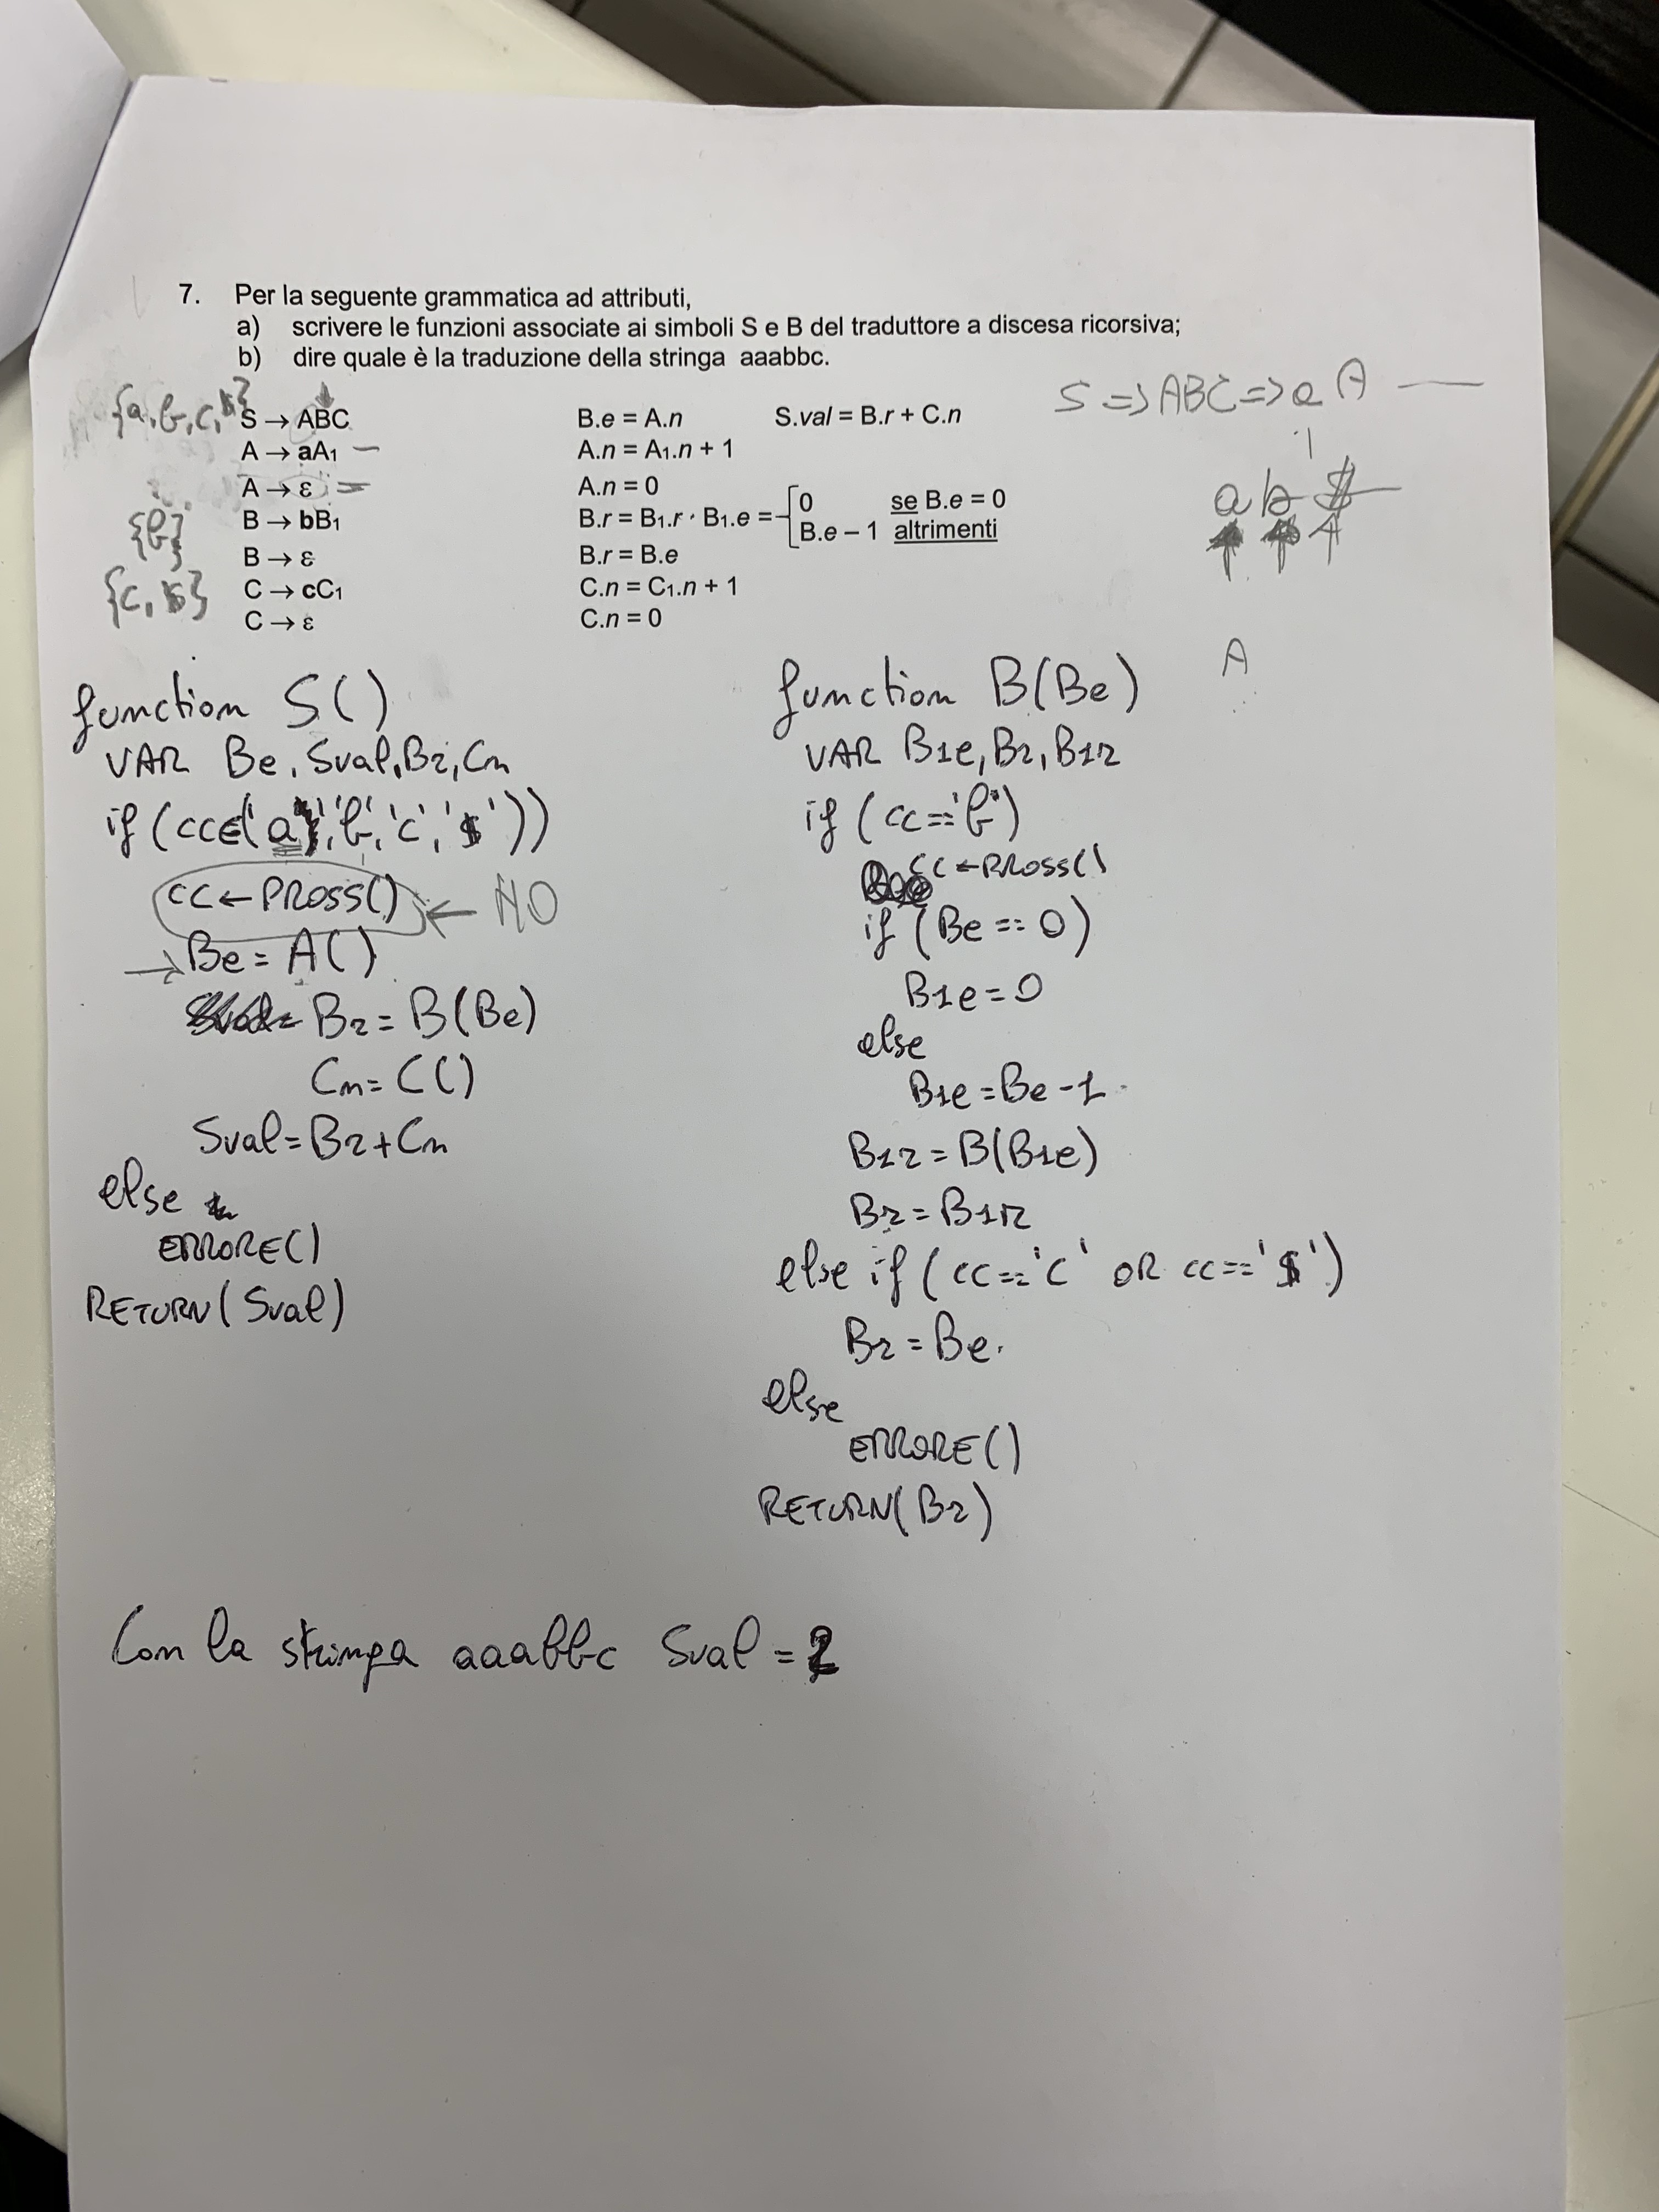 7. Per la seguente grammatica ad attributi,
a) scrivere le funzioni associate ai simboli S e B del traduttore a discesa ricorsiva;
b) dire quale è la traduzione della stringa aaabbc.
{a,b,c,$} S → ABC B.e = A.n S.val = B.r + C.n
S => ABC => a A
A → aA₁ A.n = A₁.n + 1
A → ε A.n = 0
{b} B → bB₁ B.r = B₁.r · B₁.e = 0 se B.e = 0
B.e – 1 altrimenti
a b $
B → ε B.r = B.e
{c, $} C → cC₁ C.n = C₁.n + 1
C → ε C.n = 0
A
function S()
VAR Be, Sval, Br, Cn
if (cc∈('a','b','c','$'))
cc ← PROSS() ← NO
→ Be = A()
Br = B(Be)
Cn = C()
Sval = Br + Cn
else
ERRORE()
RETURN(Sval)
function B(Be)
VAR B1e, Br, B1r
if (cc=='b')
cc ← PROSS()
if (Be == 0)
B1e = 0
else
B1e = Be - 1
B1r = B(B1e)
Br = B1r
else if (cc=='c' OR cc=='$')
Br = Be
else
ERRORE()
RETURN(Br)
Con la stringa aaabbc Sval = 2